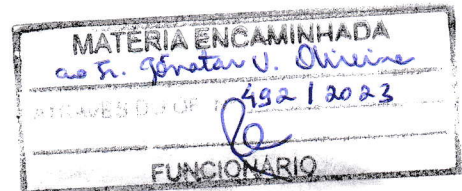 MATÉRIA ENCAMINHADA
ao Sr. Jônatan J. Oliveira
ATRAVÉS DO OF. 492 / 2023
FUNCIONÁRIO